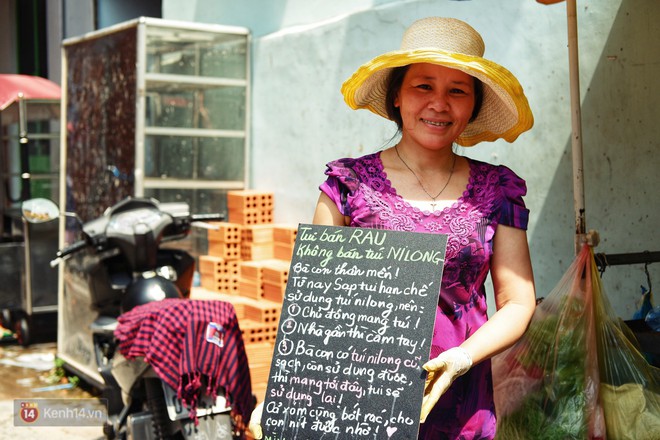 Tui bán RAU
Không bán túi NILONG
Bà con thân mến!
Từ nay Sạp tui hạn chế
sử dụng túi nilong, nên:
① Chủ động mang túi!
② Nhà gần thì cầm tay!
③ Bà con có túi nilong cũ,
sạch, còn sử dụng được,
thì mang tới đây, tui sẽ
sử dụng lại!
Cả xóm cùng bớt rác, cho
con nít được nhờ!
14 Kenh14.vn